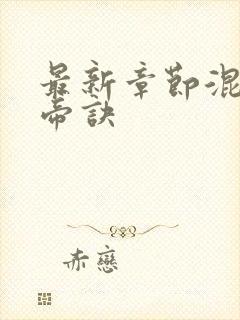 最新章節混
帝訣
赤戀